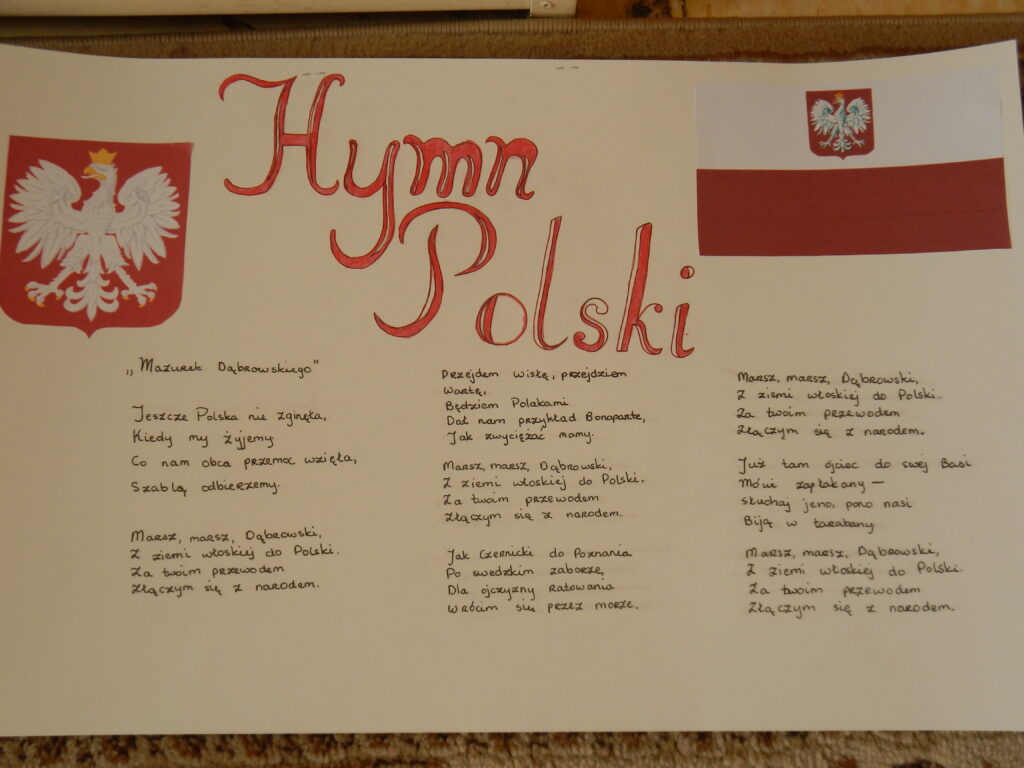 Hymn
Polski
„Mazurek Dąbrowskiego"
Jeszcze Polska nie zginęła,
Kiedy my żyjemy.
Co nam obca przemoc wzięła,
Szablą odbierzemy.
Marsz, marsz, Dąbrowski,
Z ziemi włoskiej do Polski.
Za twoim przewodem
Złączym się z narodem.
Przejdem Wisłę, przejdziem
Wartę,
Będziem Polakami
Dał nam przykład Bonaparte,
Jak zwyciężać mamy.
Marsz, marsz, Dąbrowski,
Z ziemi włoskiej do Polski.
Za twoim przewodem
Złączym się z narodem.
Jak Czernicki do Poznania
Po swedzkim zaborze,
Dla ojczyzny Ratowania
Wrócim się przez morze.
Marsz, marsz, Dąbrowski,
Z ziemi włoskiej do Polski.
Za twoim przewodem
Złączym się z narodem.
Już tam ojciec do swej Basi
Mówi zapłakany —
słuchaj jeno, pono nasi
Biją w tarabany.
Marsz, marsz, Dąbrowski,
Z ziemi włoskiej do Polski.
Za twoim przewodem
Złączym się z narodem.